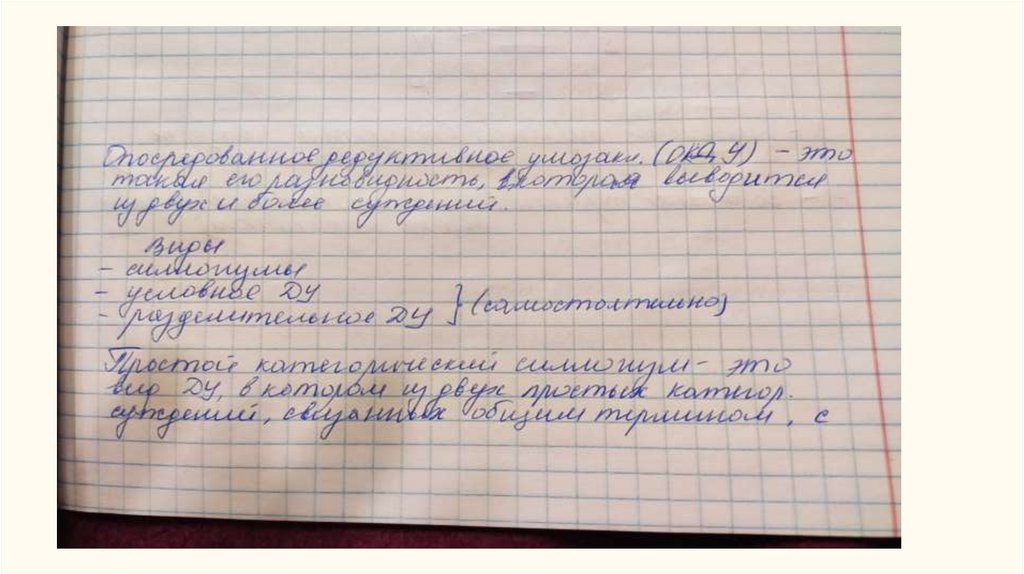 Опосредованное дедуктивное умозакл. (ОКДУ) - это
такая его разновидность, в которая выводится
из двух и более суждений.
виды
- силлогизмы
- условное ДУ
- разделительное ДУ } (самостоятельно)
Простой категорический силлогизм - это
вид ДУ, в котором из двух простых категор.
суждений, связанных общим термином, с